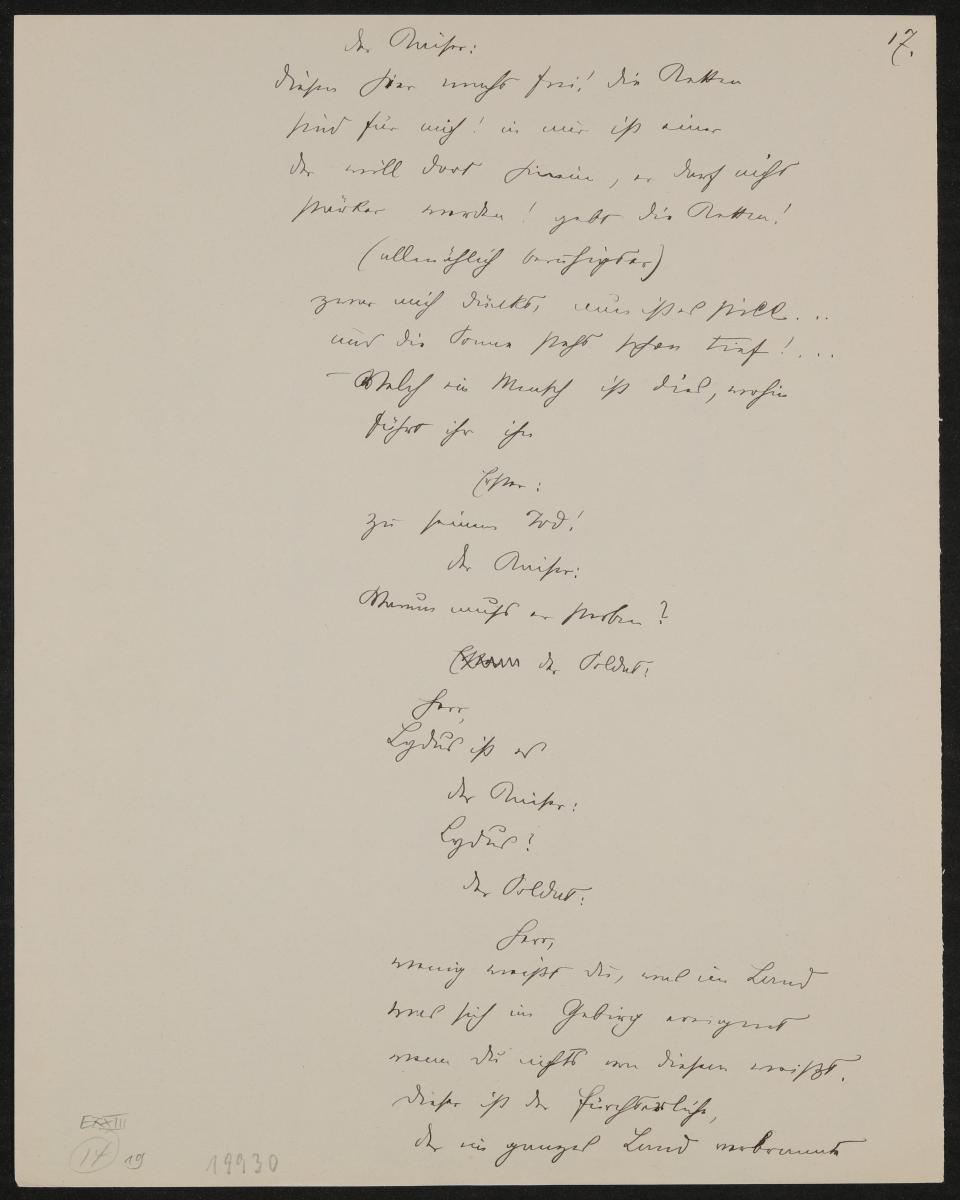 17.
der Kaiser:
diesen hier macht frei! die Ratten
sind für mich! in mir ist einer
der will dort hinein, er darf nicht
stärker werden! gebt die Ratten!
(allmählich beruhigter)
zwar mich dünkt, nun ist es still...
und die Sonne steht schon tief!...
– Welch ein Mensch ist dies, wohin
führt ihr ihn
Ester:
zu seinem Tod!
der Kaiser:
Warum muß er sterben?
der Soldat:
Herr,
Lydus ist es
der Kaiser:
Lydus?
der Soldat:
Herr,
wenig weißt du, was im Land
was sich im Gebirg ereignet
wenn du nichts von diesem weißt.
Dieser ist der fürchterliche,
der ein ganzes Land verbrannte
EXXIII
17 19
19930